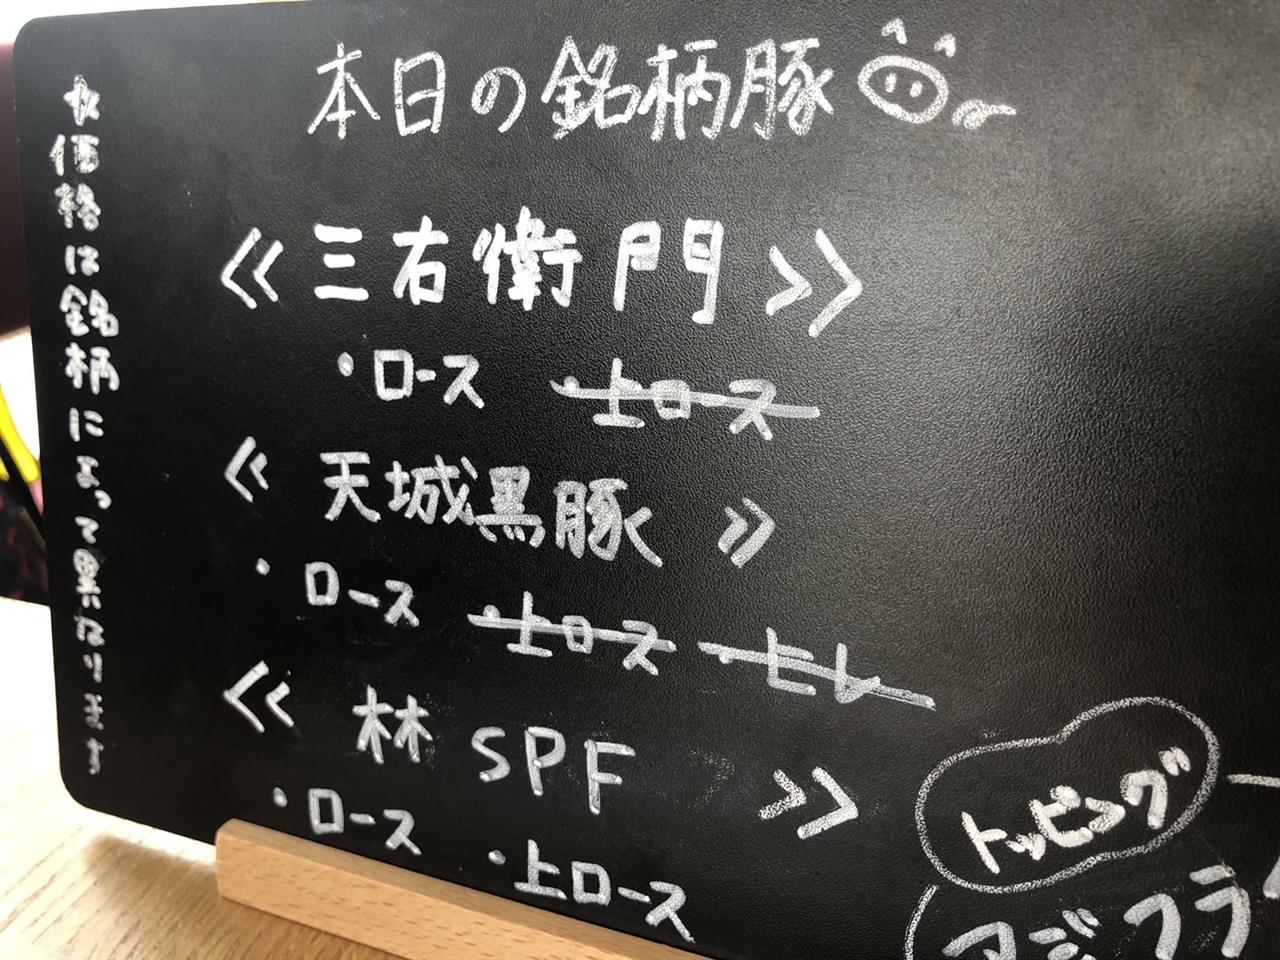 本日の銘柄豚
≪三右衛門≫
・ロース ・上ロース
≪天城黒豚≫
・ロース ・上ロース ・ヒレ
≪林SPF≫
・ロース ・上ロース
※価格は銘柄によって異なります
トッピング
アジフラ